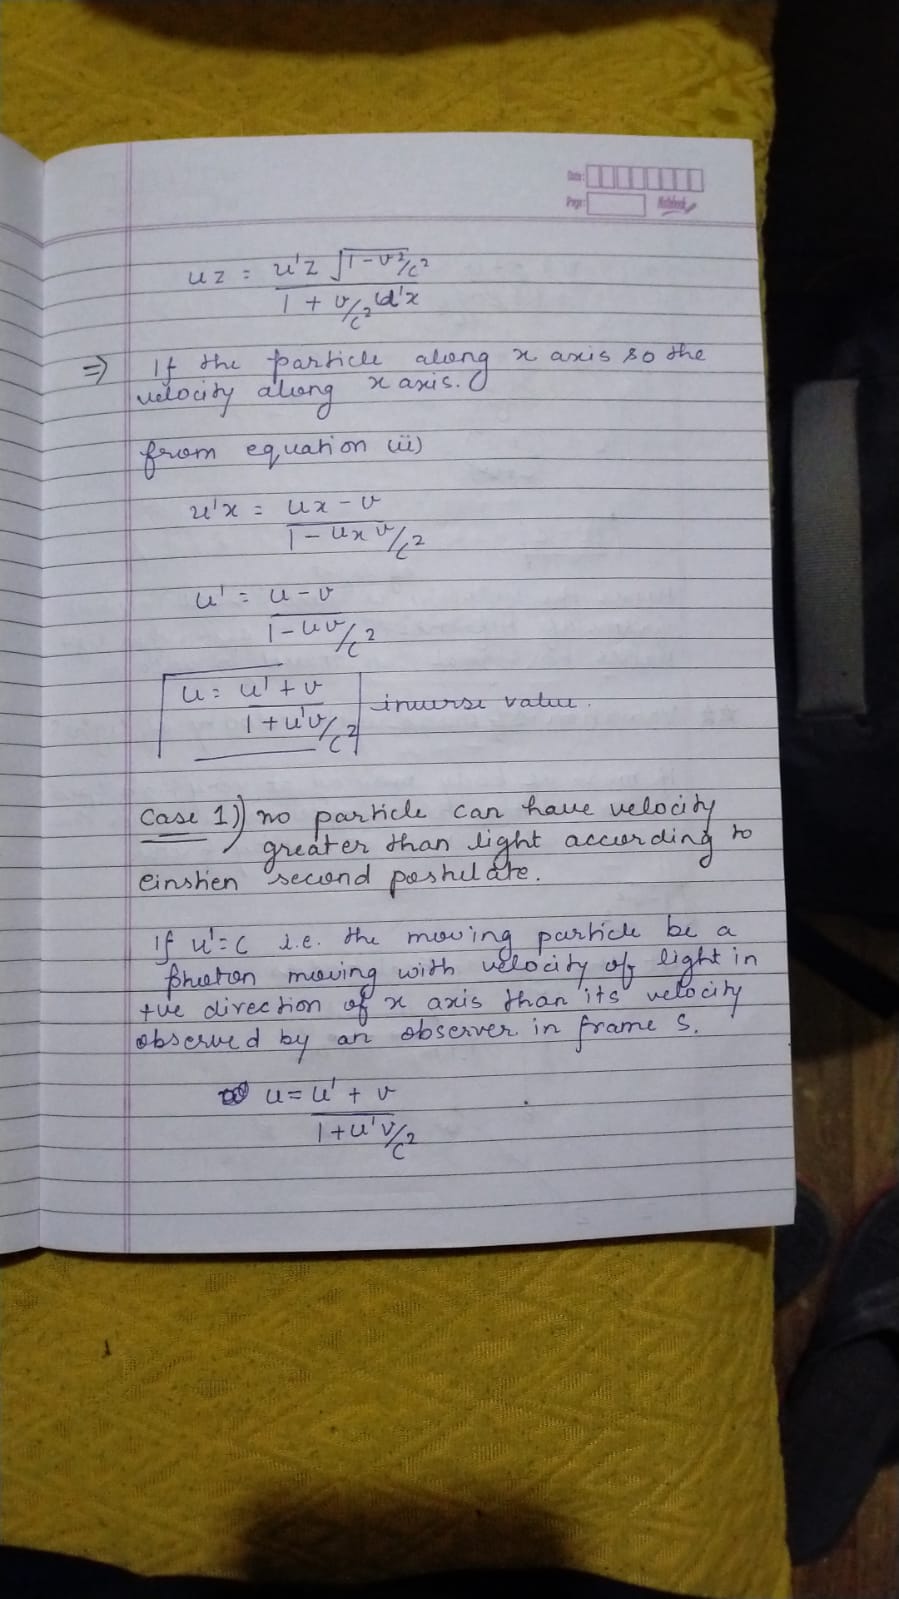 Date:
Page:
Notebook
uz = u'z √1-v²/c²
1 + v/c² u'x
⇒ If the particle along x axis so the
velocity along x axis.
from equation (ii)
u'x = ux - v
1 - ux v/c²
u' = u - v
1 - uv/c²
u = u' + v
1 + u'v/c² inverse value.
Case 1) no particle can have velocity
greater than light according to
einstien second postulate.
If u'=c i.e. the moving particle be a
photon moving with velocity of light in
+ve direction of x axis than its velocity
observed by an observer in frame S.
u = u' + v
1 + u'v/c²